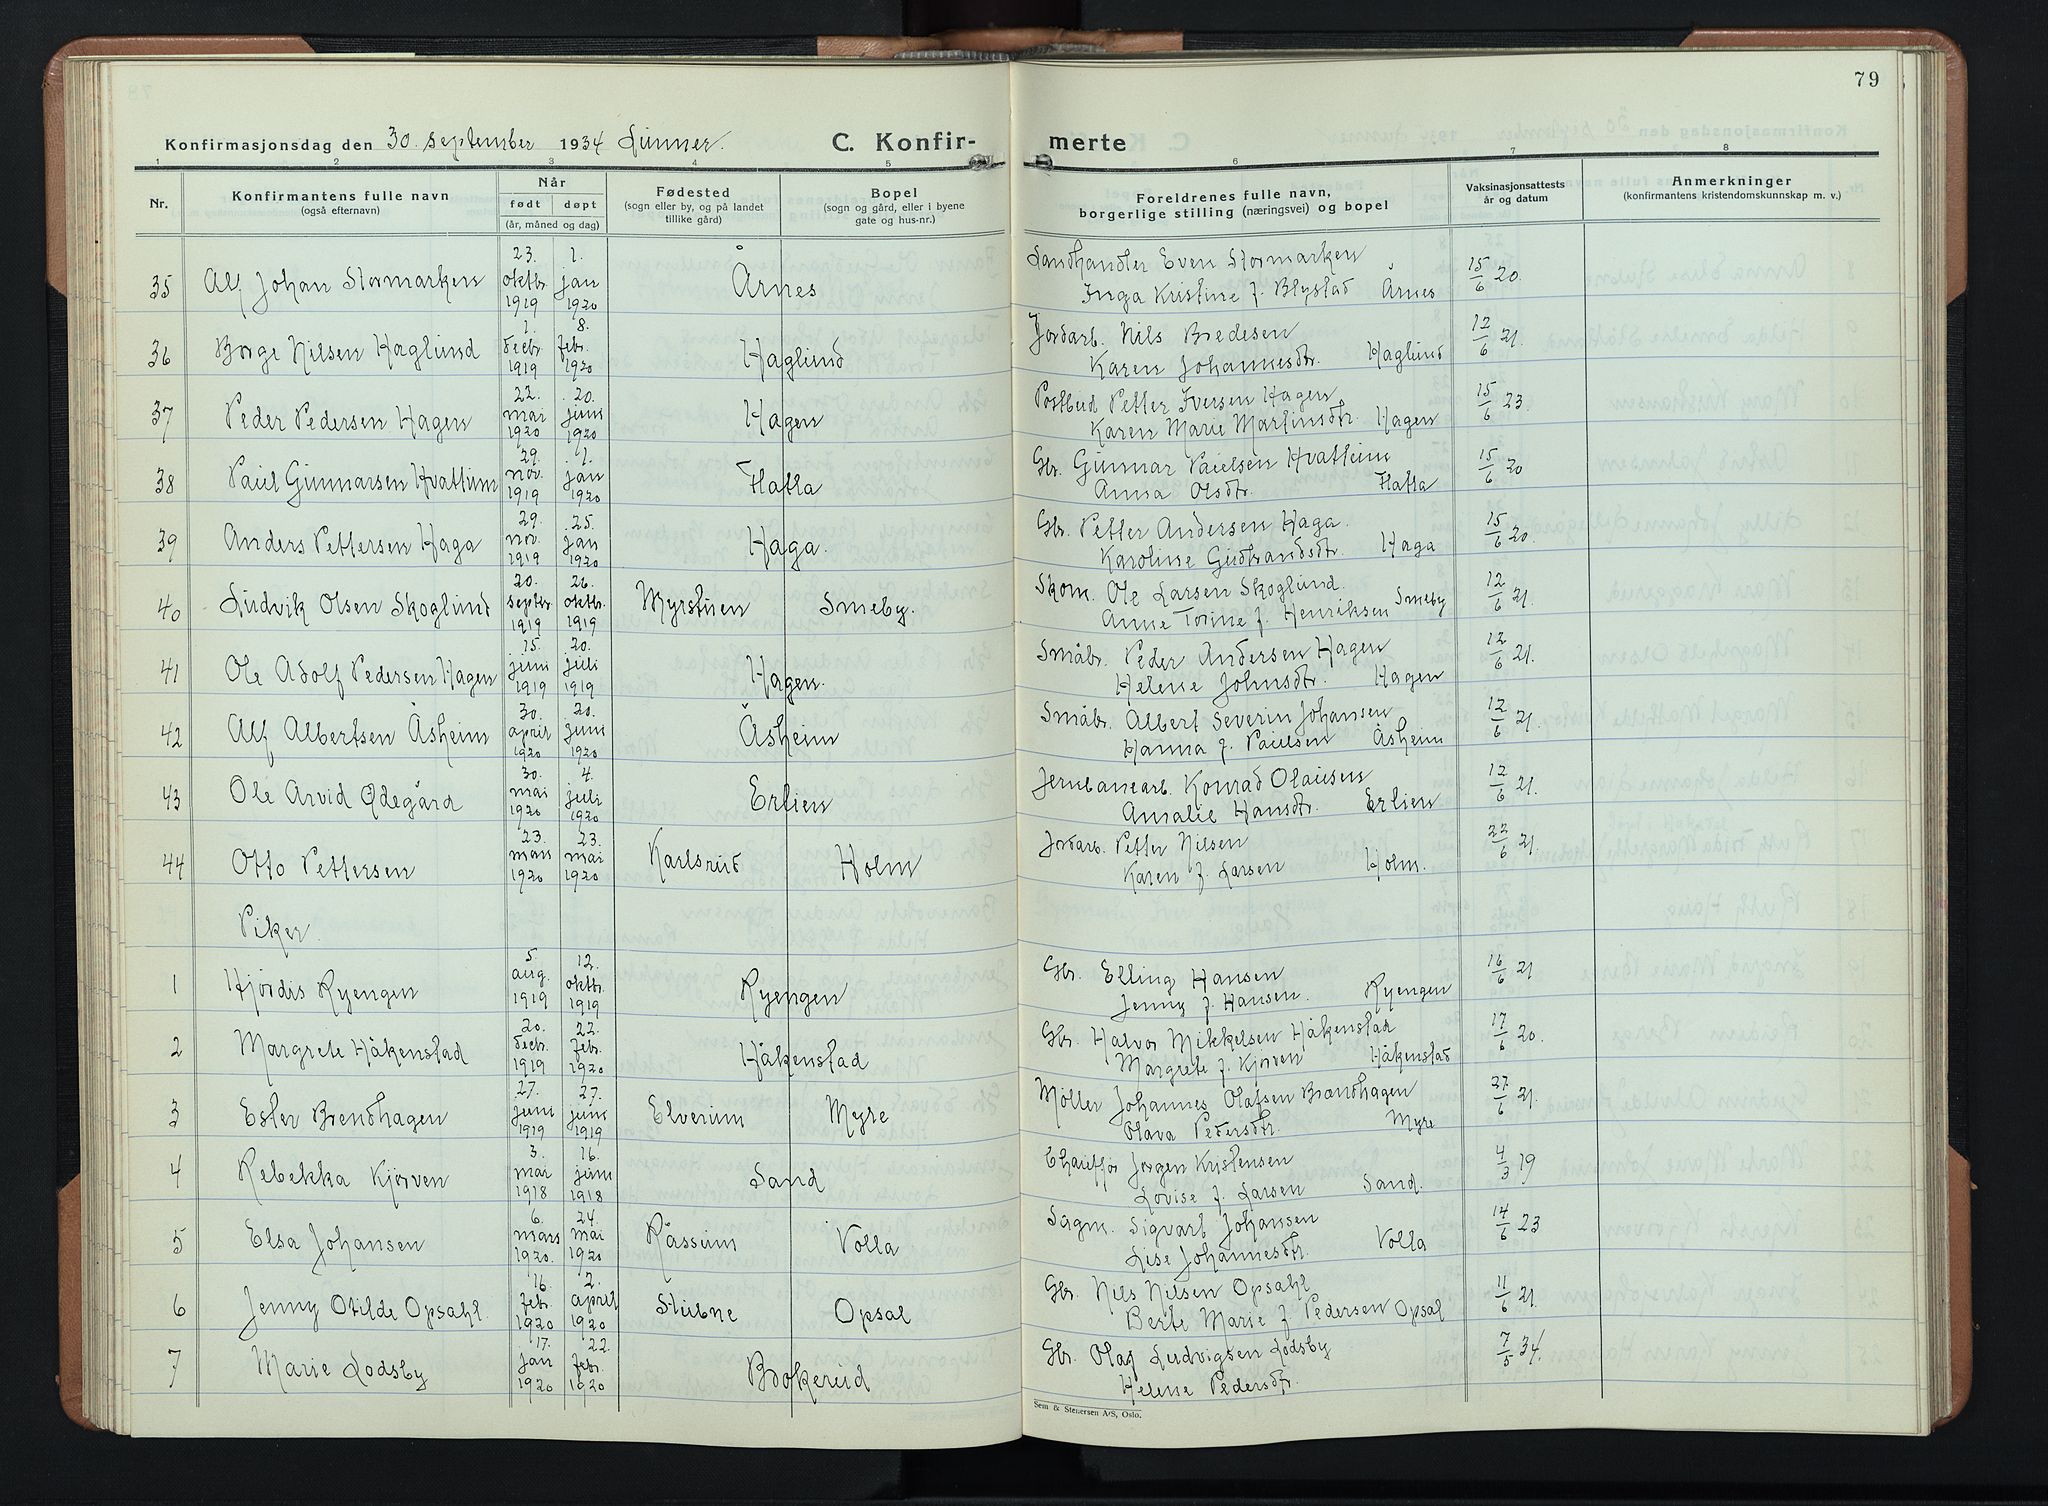 79
Konfirmasjonsdag den 30. september 1934 Lunner. C. Konfir- merte
1 2 3 4 5 6 7 8
Nr.
Konfirmantens fulle navn
(også efternavn)
Når
født døpt
(år, måned og dag)
Fødested
(sogn eller by, og på landet
tillike gård)
Bopel
(sogn og gård, eller i byene
gate og hus-nr.)
Foreldrenes fulle navn,
borgerlige stilling (næringsvei) og bopel
Vaksinasjonsattests
år og datum
Anmerkninger
(konfirmantens kristendomskunnskap m. v.)
35 Alf Johan Stormarken 23. oktbr. 1919 1. jan 1920 Årnes Landhandler Even Stormarken
Inga Kristine f. Blystad Årnes 15/6 20.
36 Borge Nilsen Haglund 1. decbr. 1919 8. febr. 1920 Haglund Jordarb. Nils Bredesen
Karen Johannesdtr. Haglund 12/6 21.
37 Peder Pedersen Hagen 22. mai 1920 20. juni 1920 Hagen Postbud Petter Iversen Hagen
Karen Marie Martinsdtr. Hagen 15/6 23.
38 Paul Gunnarsen Hvattum 29. nov. 1919 1. jan 1920 Flatla Gbr. Gunnar Paulsen Hvattum
Anna Olsdtr. Flatla 15/6 20
39 Anders Pettersen Haga 29. nov. 1919 25. jan 1920 Haga. Gbr. Petter Andersen Haga.
Karoline Gudbrandsdtr. Haga 15/6 20.
40 Ludvik Olsen Skoglund 20. septbr. 1919 26. oktbr. 1919 Myrstuen Smeby. Skom. Ole Larsen Skoglund.
Anne Torine f. Henriksen Smeby 12/6 21.
41 Ole Adolf Pedersen Hagen 15. juni 1919 20. juli 1919 Hagen. Småbr. Peder Andersen Hagen
Helene Johnsdtr. Hagen 12/6 21.
42 Alf Albertsen Åsheim 30. april 1920 20. juni 1920 Åsheim Småbr. Albert Severin Johansen
Hanna f. Paulsen Åsheim 12/6 21.
43 Ole Arvid Ødegård 30. mai 1920 4. juli 1920 Erlien Jernbanearb. Konrad Olausen
Amalie Hansdtr. Erlien 12/6 21.
44 Otto Pettersen 23. mars 1920 23. mai 1920 Karlsrud Holm Jordarb. Petter Nilsen
Karen f. Larsen Holm. 22/6 21.
Piker.
1 Hjørdis Ryengen 5. aug. 1919 12. oktbr. 1919 Ryengen Gbr. Elling Hansen
Jenny f. Hansen. Ryengen 16/6 21.
2 Margrete Håkenstad 20. decbr. 1919 22. febr. 1920 Håkenstad Gbr. Halvor Mikkelsen Håkenstad
Margrete f. Kjørven Håkenstad 17/6 20.
3 Ester Brendhagen 27. juni 1919 27. juni 1919 Elverum Myre Møller Johannes Olafsen Brendhagen
Olava Pedersdtr. Myre 27/6 21.
4 Rebekka Kjørven 3. mai 1918 16. juni 1918 Sand Chauffør Jørgen Kristensen
Lovise f. Larsen Sand. 4/3 19
5 Elsa Johansen 6. mars 1920. 24. mai 1920 Råssum Volla Sagm. Sigvart Johansen
Lise Johannesdtr. Volla 14/6 23
6 Jenny Otilde Opsahl. 16. febr. 1920 2. april 1920 Stubne Opsal Gbr. Nils Nilsen Opsahl
Berte Marie f. Pedersen Opsal 11/6 21.
7 Marie Lodsby 17. jan 1920 22. febr. 1920 Bokerud Gbr. Olaf Ludvigsen Lodsby
Helene Pedersdtr. 7/5 34.
Sem & Stenersen A/S, Oslo.